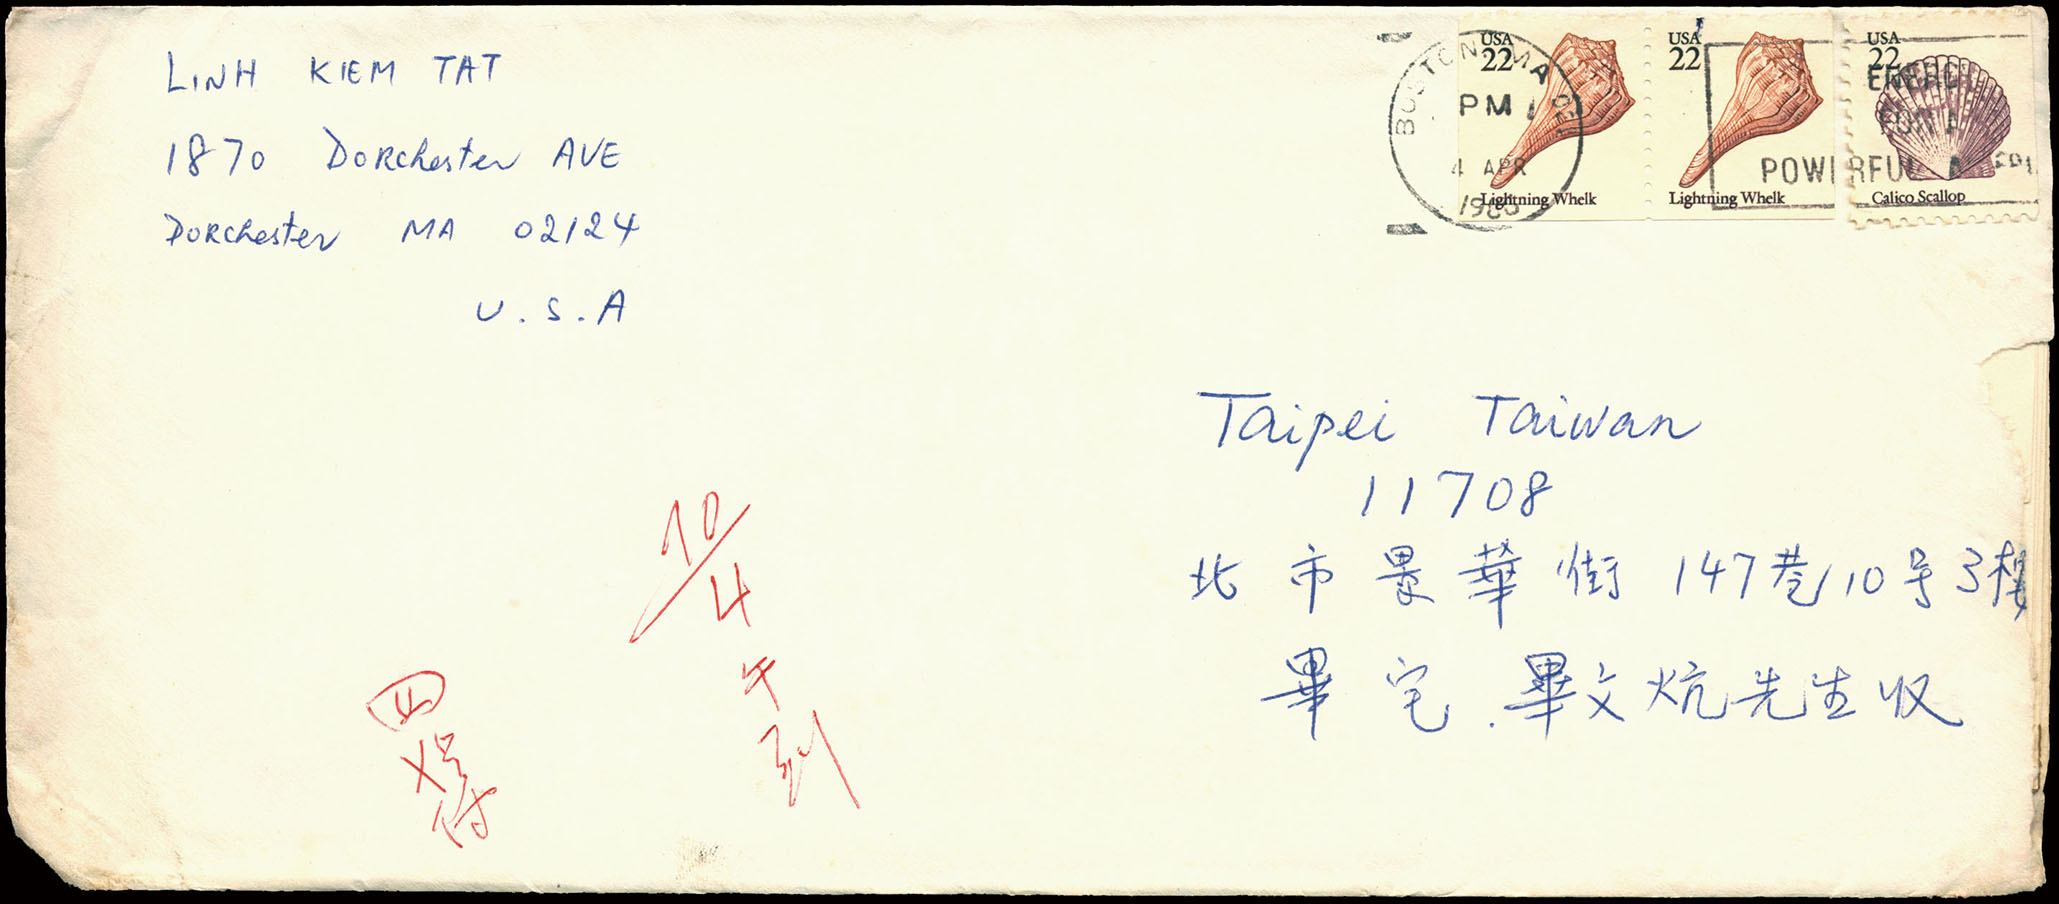 LINH KIEM TAT
1870 DORChester AVE
DORChester MA 02124
U.S.A
BOSTON MA
PM
4 APR
USA
22
Lightning Whelk
USA
22
Lightning Whelk
USA
22
Calico Scallop
POWERFUL
Taipei Taiwan
11708
北市景華街147巷10号3樓
畢宅.畢文炕先生收
10/4
午
到